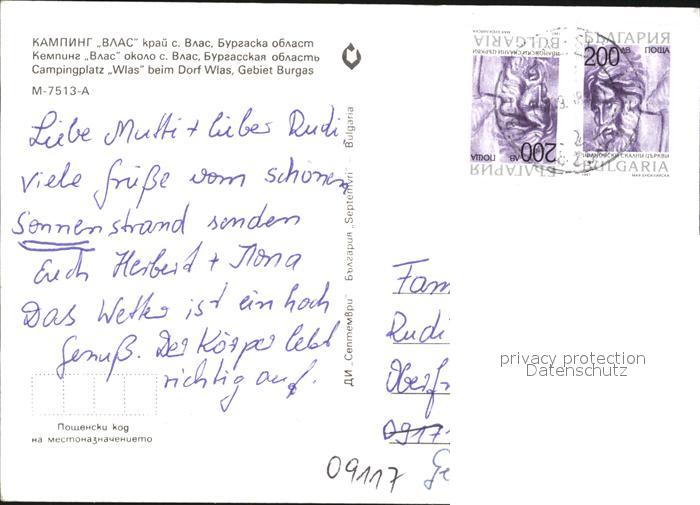 КАМПИНГ „ВЛАС" край с. Влас, Бургаска област
Кемпинг „Влас" около с. Влас, Бургасская область
Campingplatz „Wlas" beim Dorf Wlas, Gebiet Burgas
М-7513-А
Liebe Mutti + lieber Rudi
viele Grüße vom schönen
Sonnenstrand senden
Euch Herbert + Ilona
Das Wetter ist ein hoch
Genuß. Der Körper lebt
richtig auf.
Пощенски код
на местоназначението
ДИ „Септември" България „Septemvri" Bulgaria
БЪЛГАРИЯ
200 ЛВ ПОЩА
ИВАНОВСКИ СКАЛНИ ЦЪРКВИ
BULGARIA
БЪЛГАРИЯ
200 ЛВ ПОЩА
ИВАНОВСКИ СКАЛНИ ЦЪРКВИ
BULGARIA
Fam
Rudi
Oberfr
09117
09117
Ge
privacy protection
Datenschutz